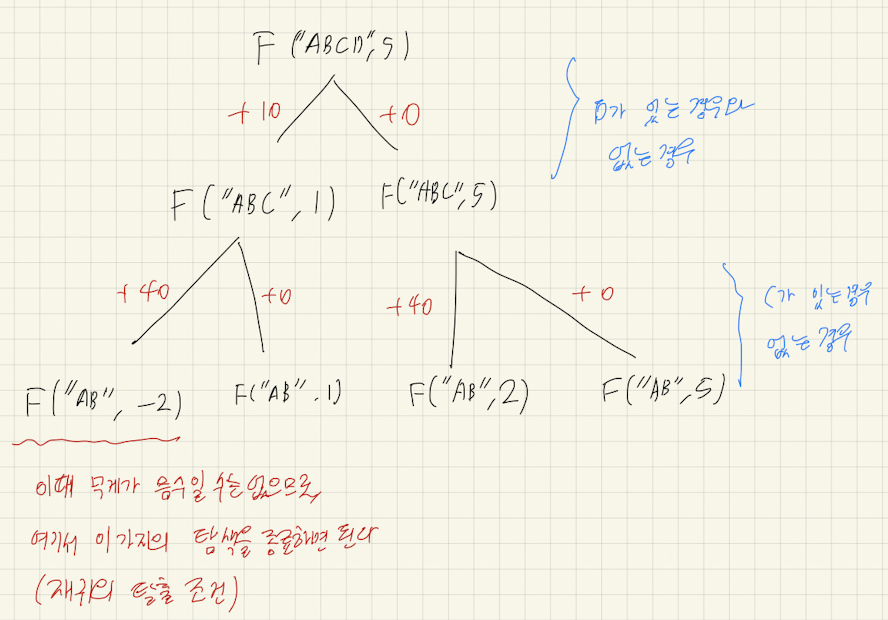 F("ABCD",5)
+10
+0
D가 있는 경우와
없는 경우
F("ABC", 1)
F("ABC",5)
+40
+0
+40
+0
C가 있는 경우
없는 경우
F("AB", -2)
F("AB", 1)
F("AB",2)
F("AB",5)
이때 무게가 음수일 수는 없으므로,
여기서 이 가지의 탐색을 종료하면 된다
(재귀의 탈출 조건)